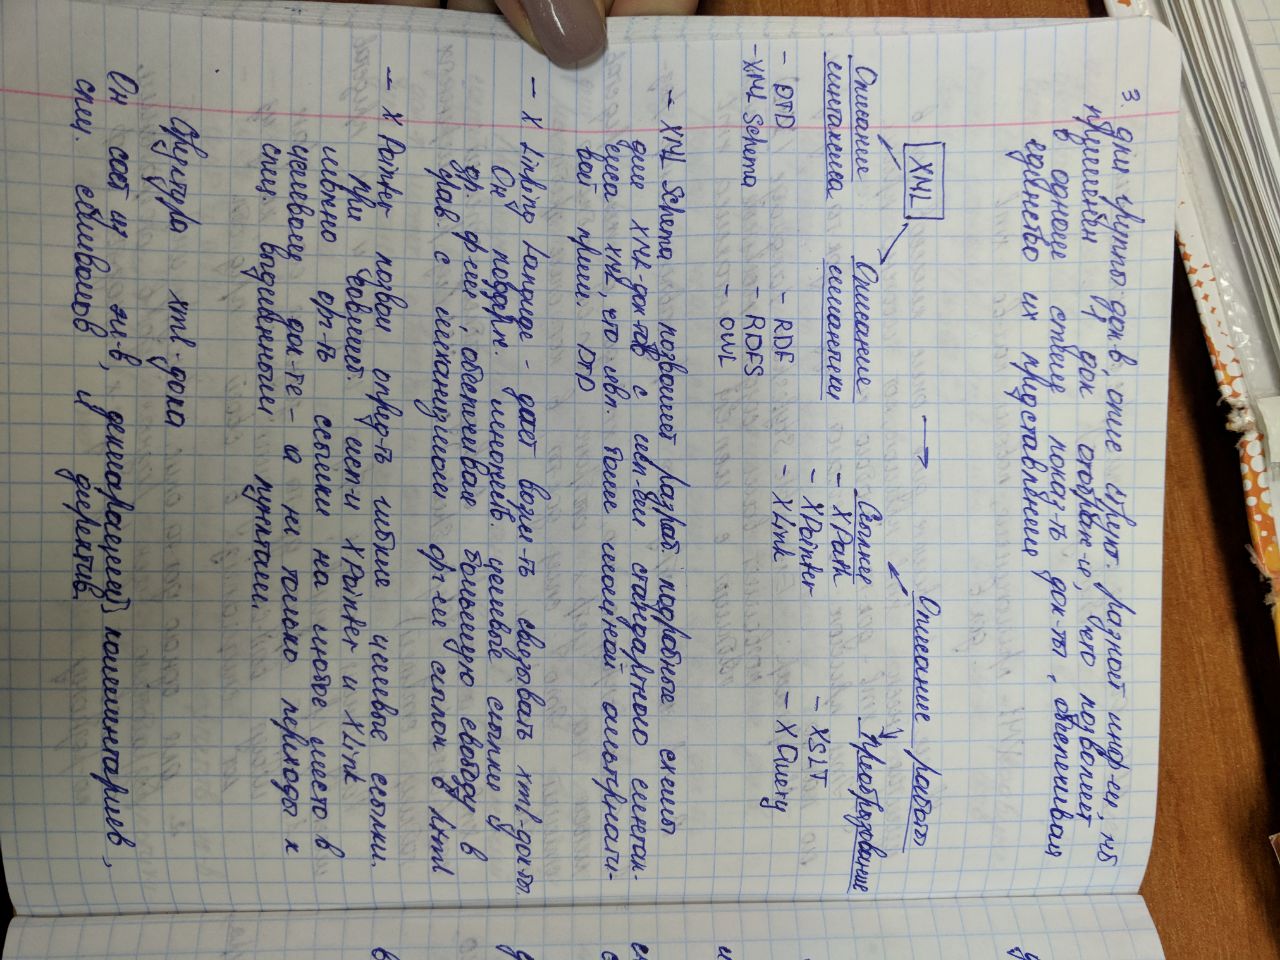 3. для группы док-в, опис. струк. разност инф-ии, мб
применён 1 док отображ-ие, что позволит
в одном стиле показ-ть док-ты, обеспечивая
единство их представления
XML → Описание работы
Описание синтаксиса
Описание семантики
Связное
Преобразование
- DTD
- XML Schema
- RDF
- RDFS
- OWL
- XPath
- XPointer
- XLink
- XSLT
- XQuery
- XML Schema позволяет разраб. подробные схемы
даие XML-док-тов с исп-ем стандартного синтак-
сиса XML, что явл. более мощной альтернати-
вой прим. DTD
- X Linking Language - даёт возм-ть связовать xml-док-ты.
Он поддерж. множеств. целевые ссылки и
др. ф-ии, обеспечивая большую свободу в
срав. с механизмом орг-ии ссылок в html
- X Pointer позвол опред-ть гибкие целевые ссылки.
При совмест. исп-и XPointer и XLink
можно орг-ть ссылки на любое место в
целевом док-те - а не только переходы к
спец. выделенным пунктам.
Структура xml-дока
Он сост из эл-в, деклараций, комментариев,
спец. символов и директив.